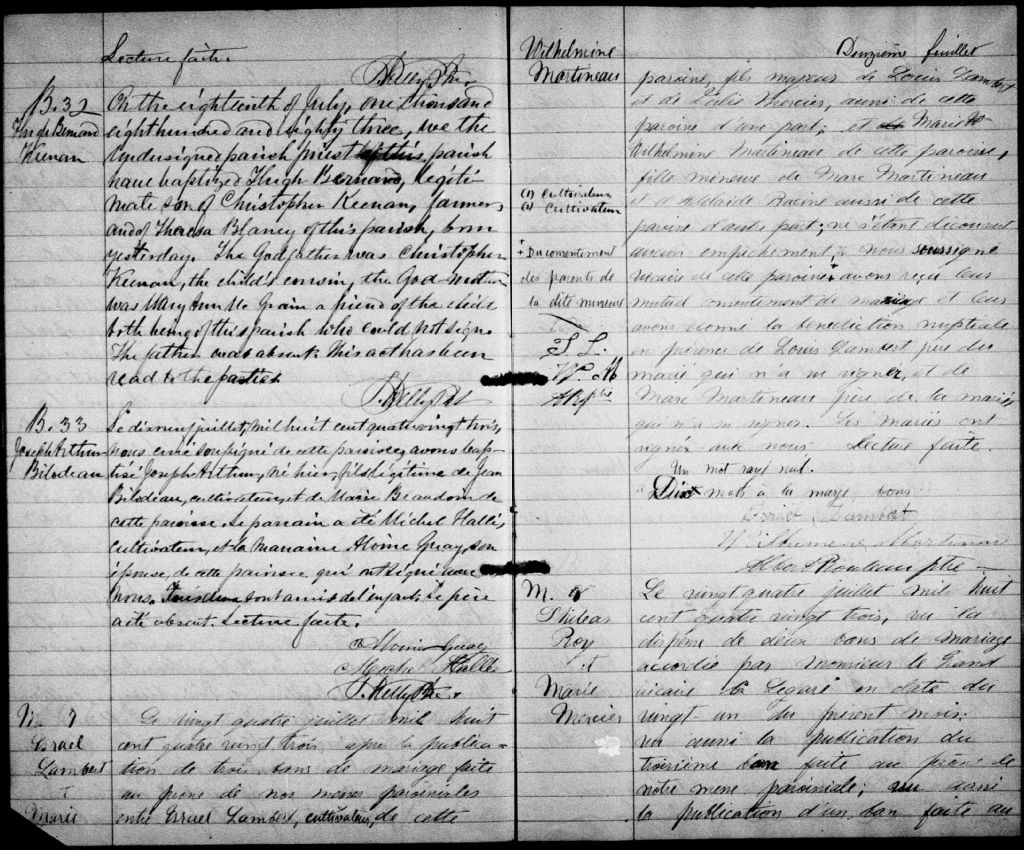 Lecture faite.
B. 32
Hugh Bernard
Keenan
On the eighteenth of July, one thousand
eight hundred and eighty three, we the
undersigned parish priest of this parish
have baptized Hugh Bernard, legiti-
mate son of Christopher Keenan, farmer,
and of Theresa Blaney of this parish, born
yesterday. The Godfather was Christopher
Keenan, the child's cousin, the God-mother
was Mary Ann Mc Grain a friend of the child
both being of this parish who could not sign.
The father was absent. This act has been
read to the parties.
B. 33
Joseph Arthur
Bilodeau
Le dix neuf juillet, mil huit cent quatre vingt trois,
nous curé soussigné de cette paroisse, avons bap-
tisé Joseph Arthur, né hier, fils légitime de Jean
Bilodeau, cultivateur, et de Marie Beaudoin de
cette paroisse. Le parrain a été Michel Hallé,
cultivateur, et la marraine Alvine Guay, son
épouse, de cette paroisse qui ont signé avec
nous. Tous deux sont amis de l'enfant. Le père
a été absent. Lecture faite.
Alvine Guay
Hallé
M. 7
Israel
Lambert
&
Marie
Le vingt quatre juillet mil huit
cent quatre vingt trois, après la publica-
tion de trois bans de mariage faite
au prone de nos messes paroissiales
entre Israel Lambert, cultivateur, de cette
Wilhelmine
Martineau
Deuxième feuillet
paroisse, fils majeur de Louis Lambert
et de Julie Mercier, aussi de cette
paroisse d'une part; et Marie
Wilhelmine Martineau de cette paroisse,
fille mineure de Marc Martineau
et d'Adelaide Racine aussi de cette
paroisse d'autre part; ne s'étant découvert
aucun empêchement, nous soussigné
vicaire de cette paroisse + avons reçu leur
mutuel consentement de mariage et leur
avons donné la bénédiction nuptiale
en présence de Louis Lambert père du
marié qui n'a su signer, et de
Marc Martineau père de la mariée
qui n'a su signer. Les mariés ont
signés avec nous. Lecture faite.
(1) Cultivateur
(2) Cultivateur
+ Du consentement
des parents de
la dite mineure
Un mot rayé nul.
Dix mots à la marge bons.
Israel Lambert
Wilhelmine Martineau
M. 8
Philéas
Roy
&
Marie
Mercier
Le vingt quatre juillet mil huit
cent quatre vingt trois, vu la
dispense de deux bans de mariage
accordée par Monsieur le Grand
vicaire Legaré en date du
vingt-un du présent mois;
vu aussi la publication du
troisième ban faite au prône de
notre messe paroissiale; vu aussi
la publication d'un ban faite au